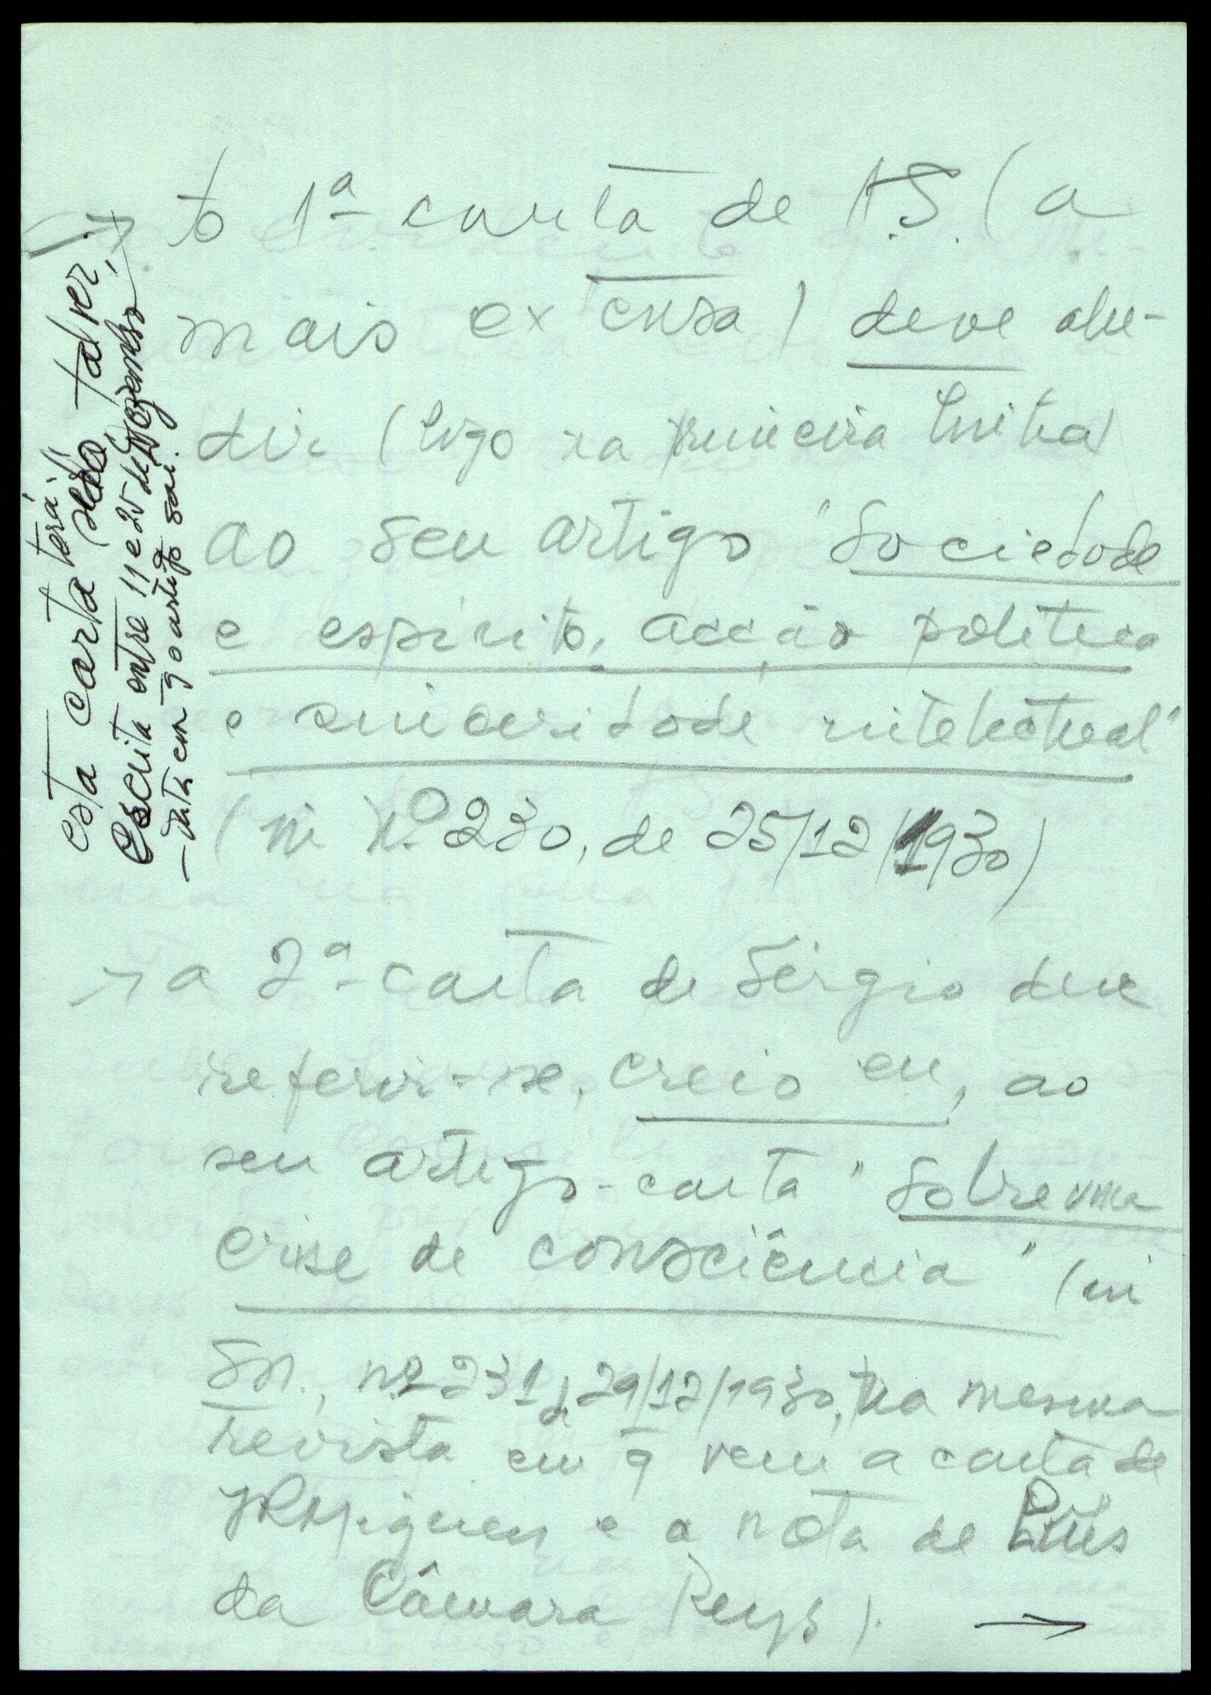 → a 1ª carta de A.S. (a
mais extensa) deve alu-
dir (logo na primeira linha)
ao seu artigo "Sociedade
e espírito, acção política
e sinceridade intelectual"
(in nº 230, de 25/12/1930)
→ a 2ª carta de Sérgio deve
referir-se, creio eu, ao
seu artigo-carta "Sobre uma
crise de consciência" (in
SN., nº 231, de 29/12/1930, na mesma
revista em q vem a carta de
JR Migueis e a nota de Luís
da Câmara Reys). →
esta carta terá sido, talvez,
escrita entre 11 e 25 de Dezembro
data em q o artigo sai.